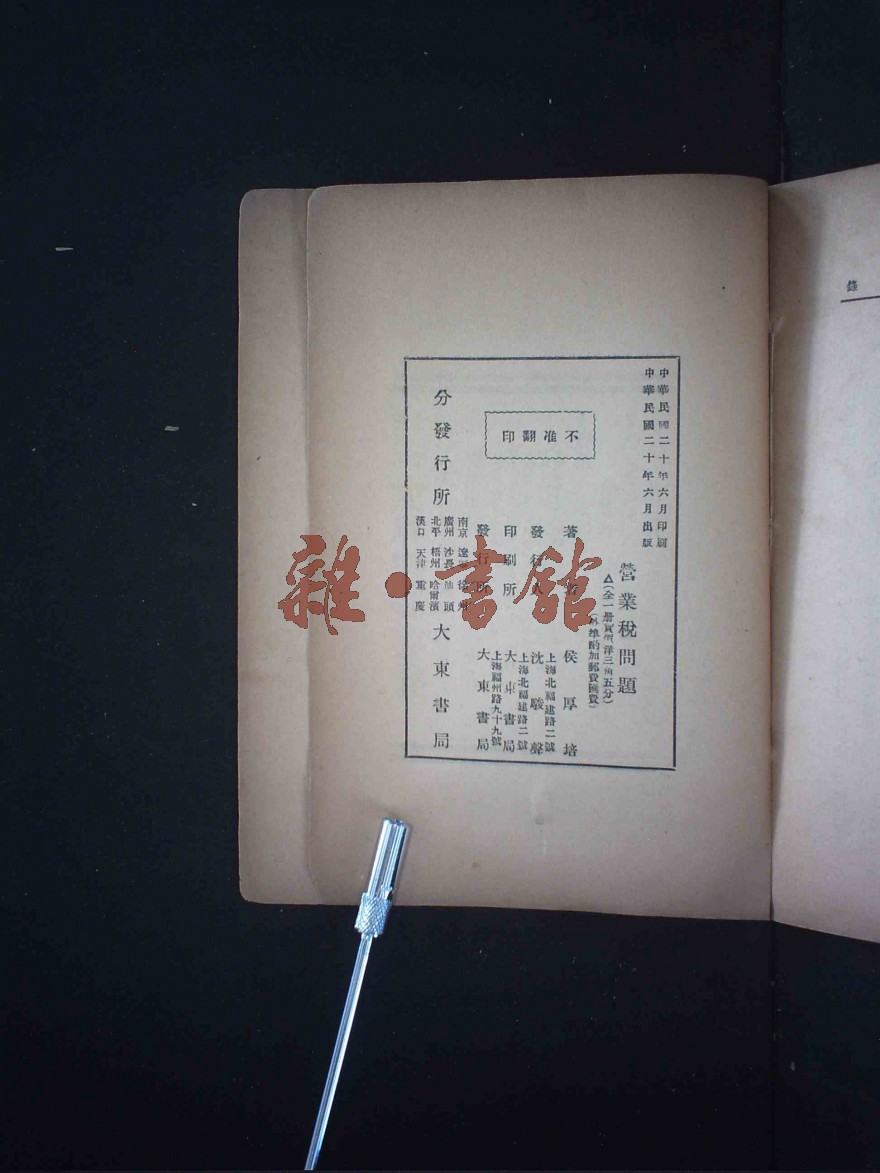 中華民國二十年六月印刷
中華民國二十年六月出版
營業稅問題
△(全一册實價洋三角五分)
(外埠酌加郵費匯費)
不准翻印
著者 侯厚培
發行人 沈駿聲
上海北福建路二號
印刷所 大東書局
上海北福建路二號
發行所 大東書局
上海福州路九十九號
分發行所
南京 遼 徐州
廣州 長沙 汕頭
北平 梧州 哈爾濱
漢口 天津 重慶
大東書局
錄
雜·書館